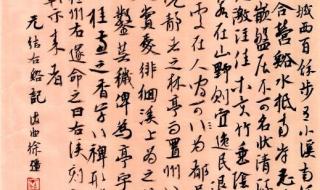 城西百餘步有小溪南
合營谿水抵兩岸悉
嵌盤屈不可名狀清
激注佳木異竹垂陰
若在山野則宜逸民退
處在人間可以為都
靜者之林亭而置州
賞愛徘徊溪上為之
鑿蕪穢俾為亭宇
桂兼之香草以裨形
州右遂命之曰右溪刻
示來者
元結右谿記 徐強